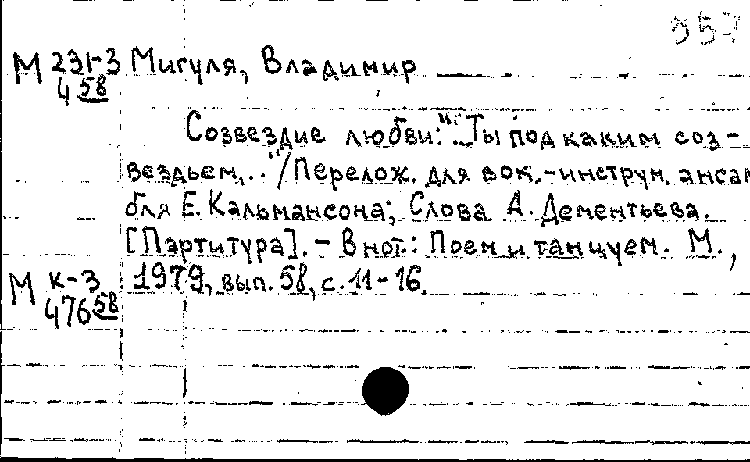 957
М 231-3 Мигуля, Владимир
4 58
Созвездие любви: "Ты под каким соз-
вездьем..."/Перелож. для вок.-инструм. ансам
бля Е. Кальмансона; Слова А. Дементьева.
[Партитура]. - В нот.: Поем и танцуем. М.,
М К-3 1979, вып. 58, с. 11-16.
476 58